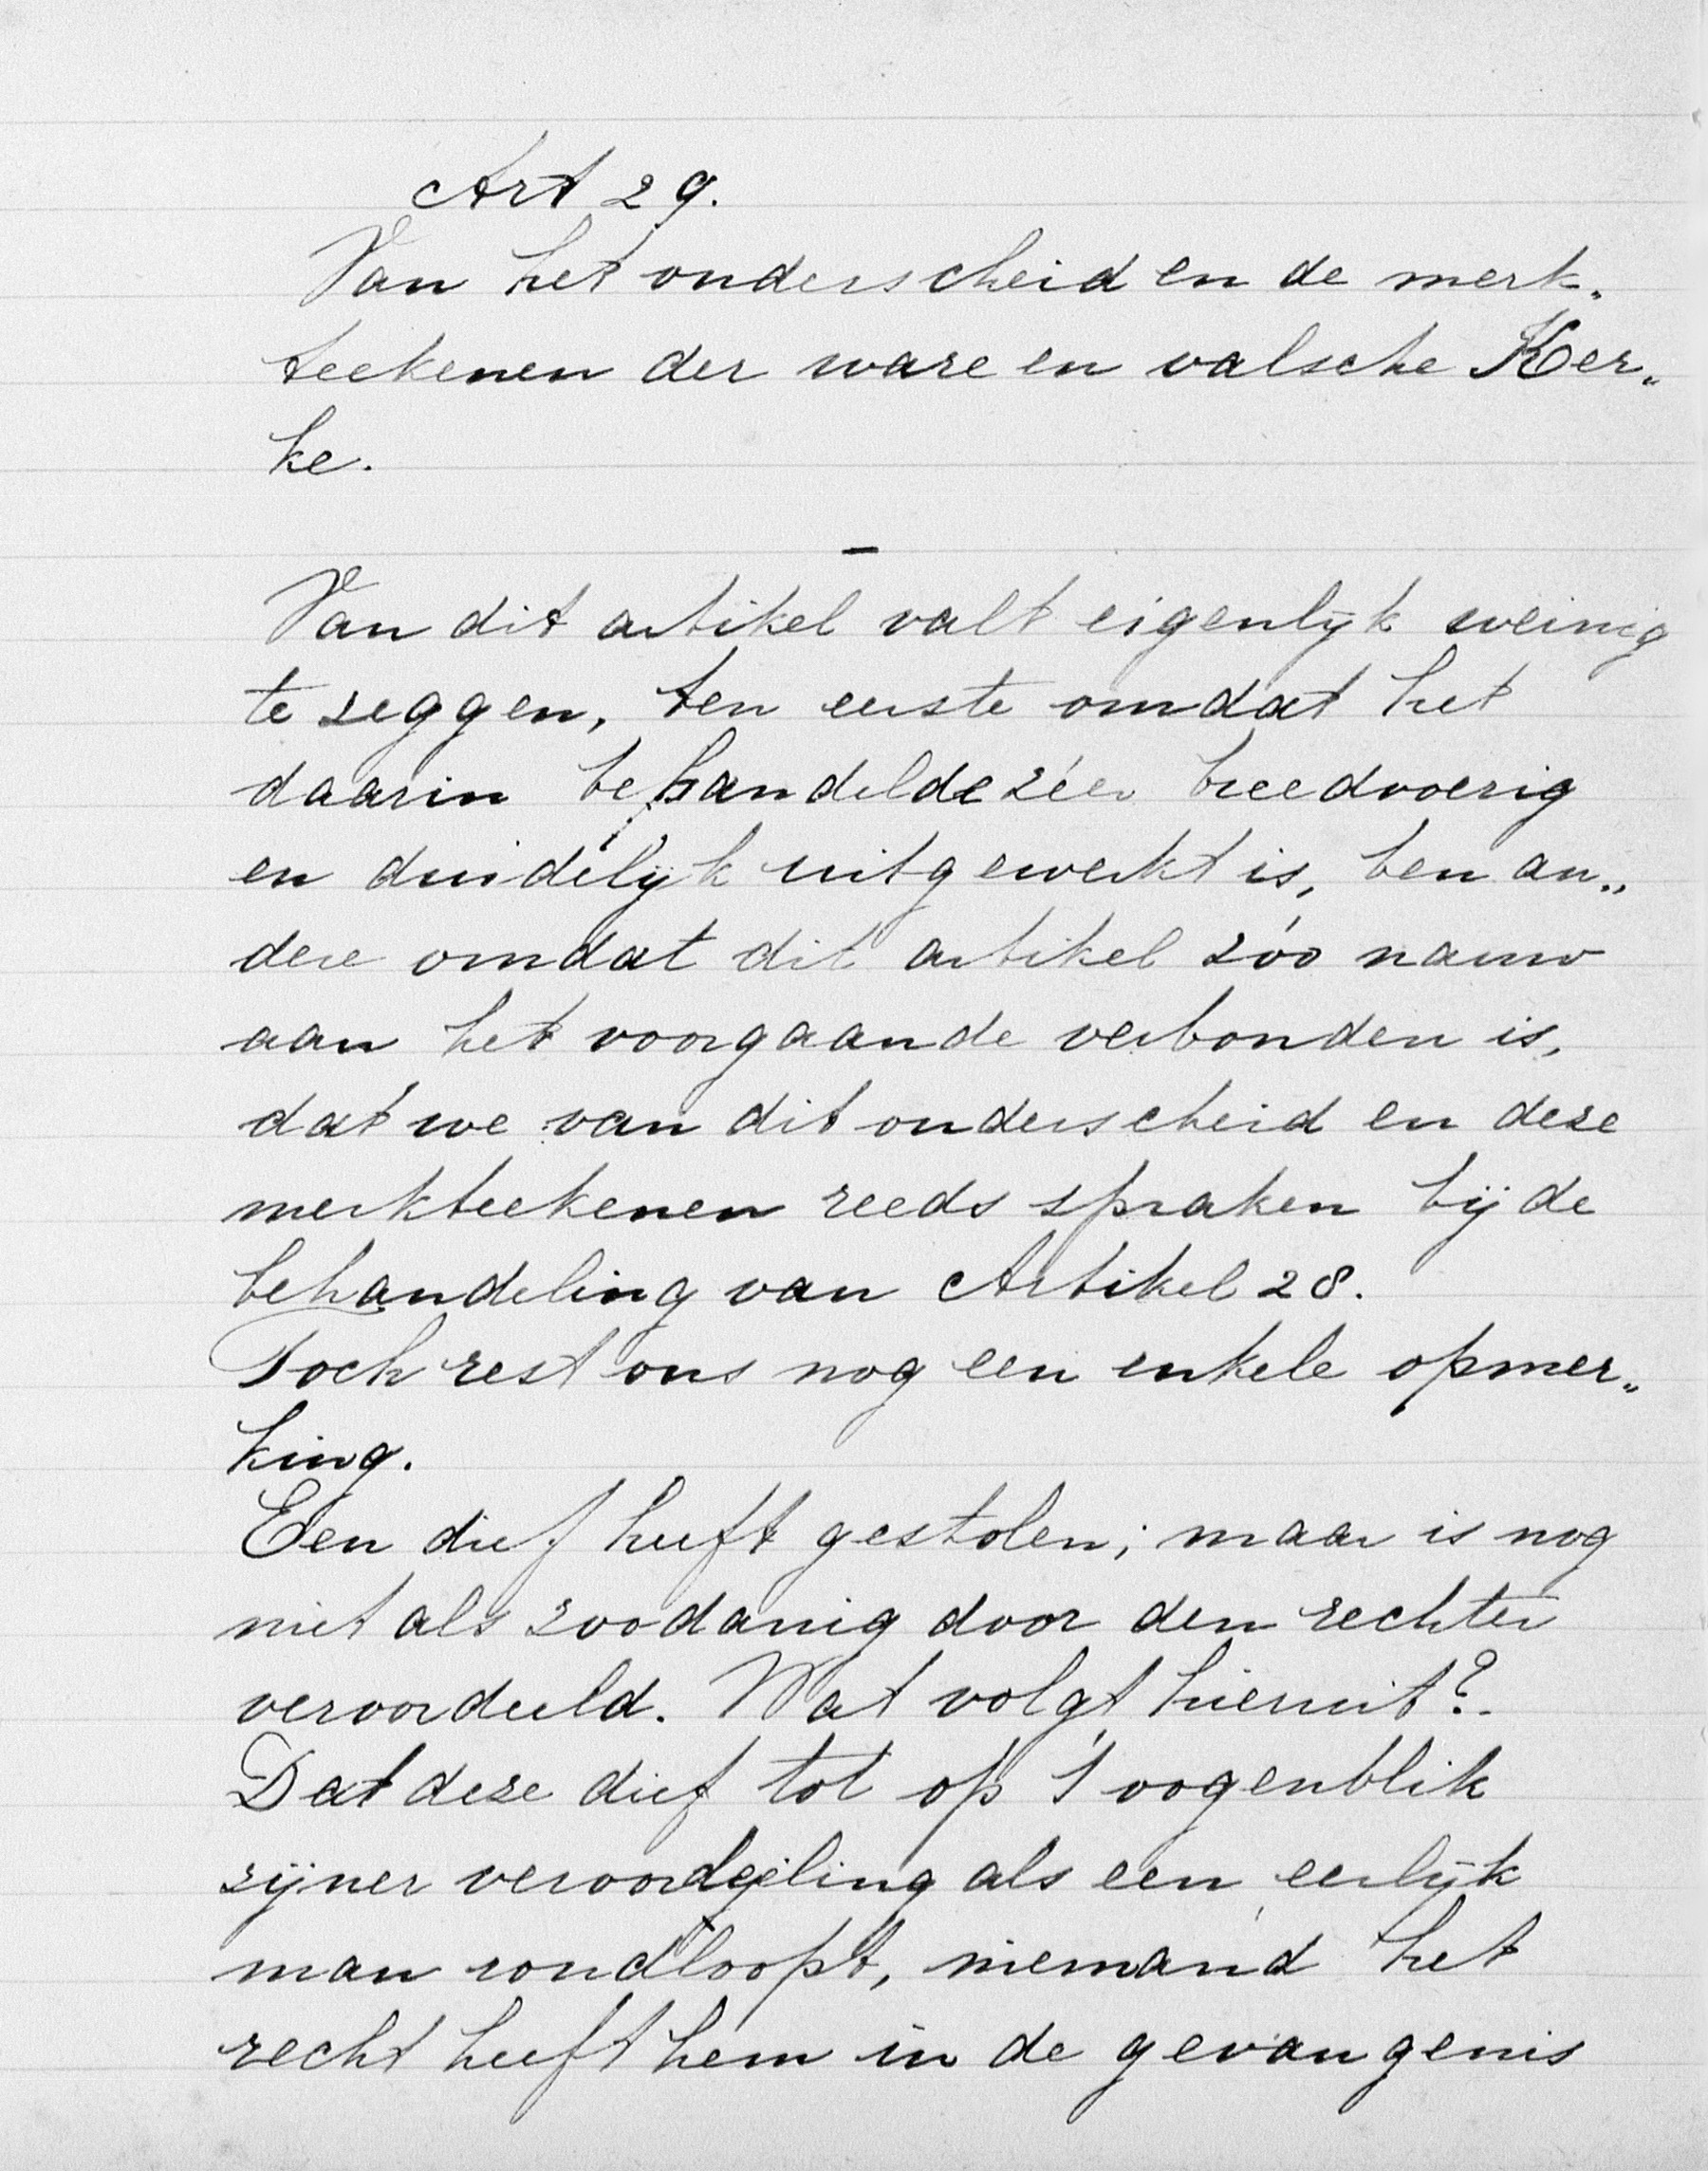 Art 29.
Van het onderscheid en de merk„
teekenen der ware en valsche Ker„
ke.
–
Van dit artikel valt eigenlijk weinig
te zeggen, ten eerste omdat het
daarin behandelde zéér breedvoerig
en duidelijk uitgewerkt is, ten an„
dere omdat dit artikel zóó nauw
aan het voorgaande verbonden is,
dat we van dit onderscheid en deze
merkteekenen reeds spraken bij de
behandeling van Artikel 28.
Toch rest ons nog een enkele opmer„
king.
Een dief heeft gestolen; maar is nog
niet als zoodanig door den rechter
veroordeeld. Wat volgt hieruit?
Dat deze dief tot op 't oogenblik
zijner veroordeeling als een eerlijk
man rondloopt, niemand het
recht heeft hem in de gevangenis